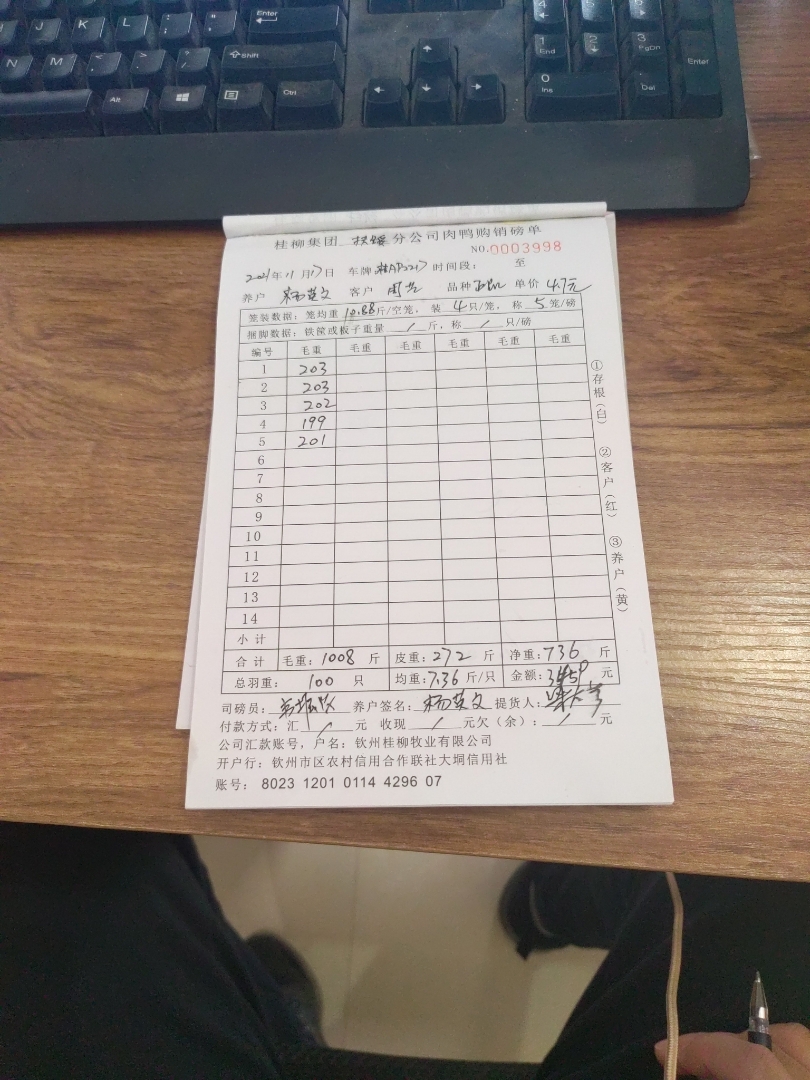 J K L
Enter
N M
Shift
Alt
Ctrl
1 End
2
3 PgDn
0 Ins
Del
Enter
桂柳集团 扶绥 分公司肉鸭购销磅单
NO.0003998
2021年11月17日 车牌 时间段： 至
养户 杨英文 客户 品种 单价 4.7元
笼装数据：笼均重 10.88 斤/空笼，装 4 只/笼，称 5 笼/磅
捆脚数据：铁筐或板子重量 / 斤，称 / 只/磅
编号 毛重 毛重 毛重 毛重 毛重 毛重
1 203
2 203
3 202
4 199
5 201
6
7
8
9
10
11
12
13
14
小计
合计 毛重：1008 斤 皮重：272 斤 净重：736 斤
总羽重： 100 只 均重：7.36 斤/只 金额： 元
司磅员： 养户签名：杨英文 提货人：
付款方式：汇 / 元 收现 / 元欠（余）： / 元
公司汇款账号，户名：钦州桂柳牧业有限公司
开户行：钦州市区农村信用合作联社大垌信用社
账号： 8023 1201 0114 4296 07
①存根（白）
②客户（红）
③养户（黄）